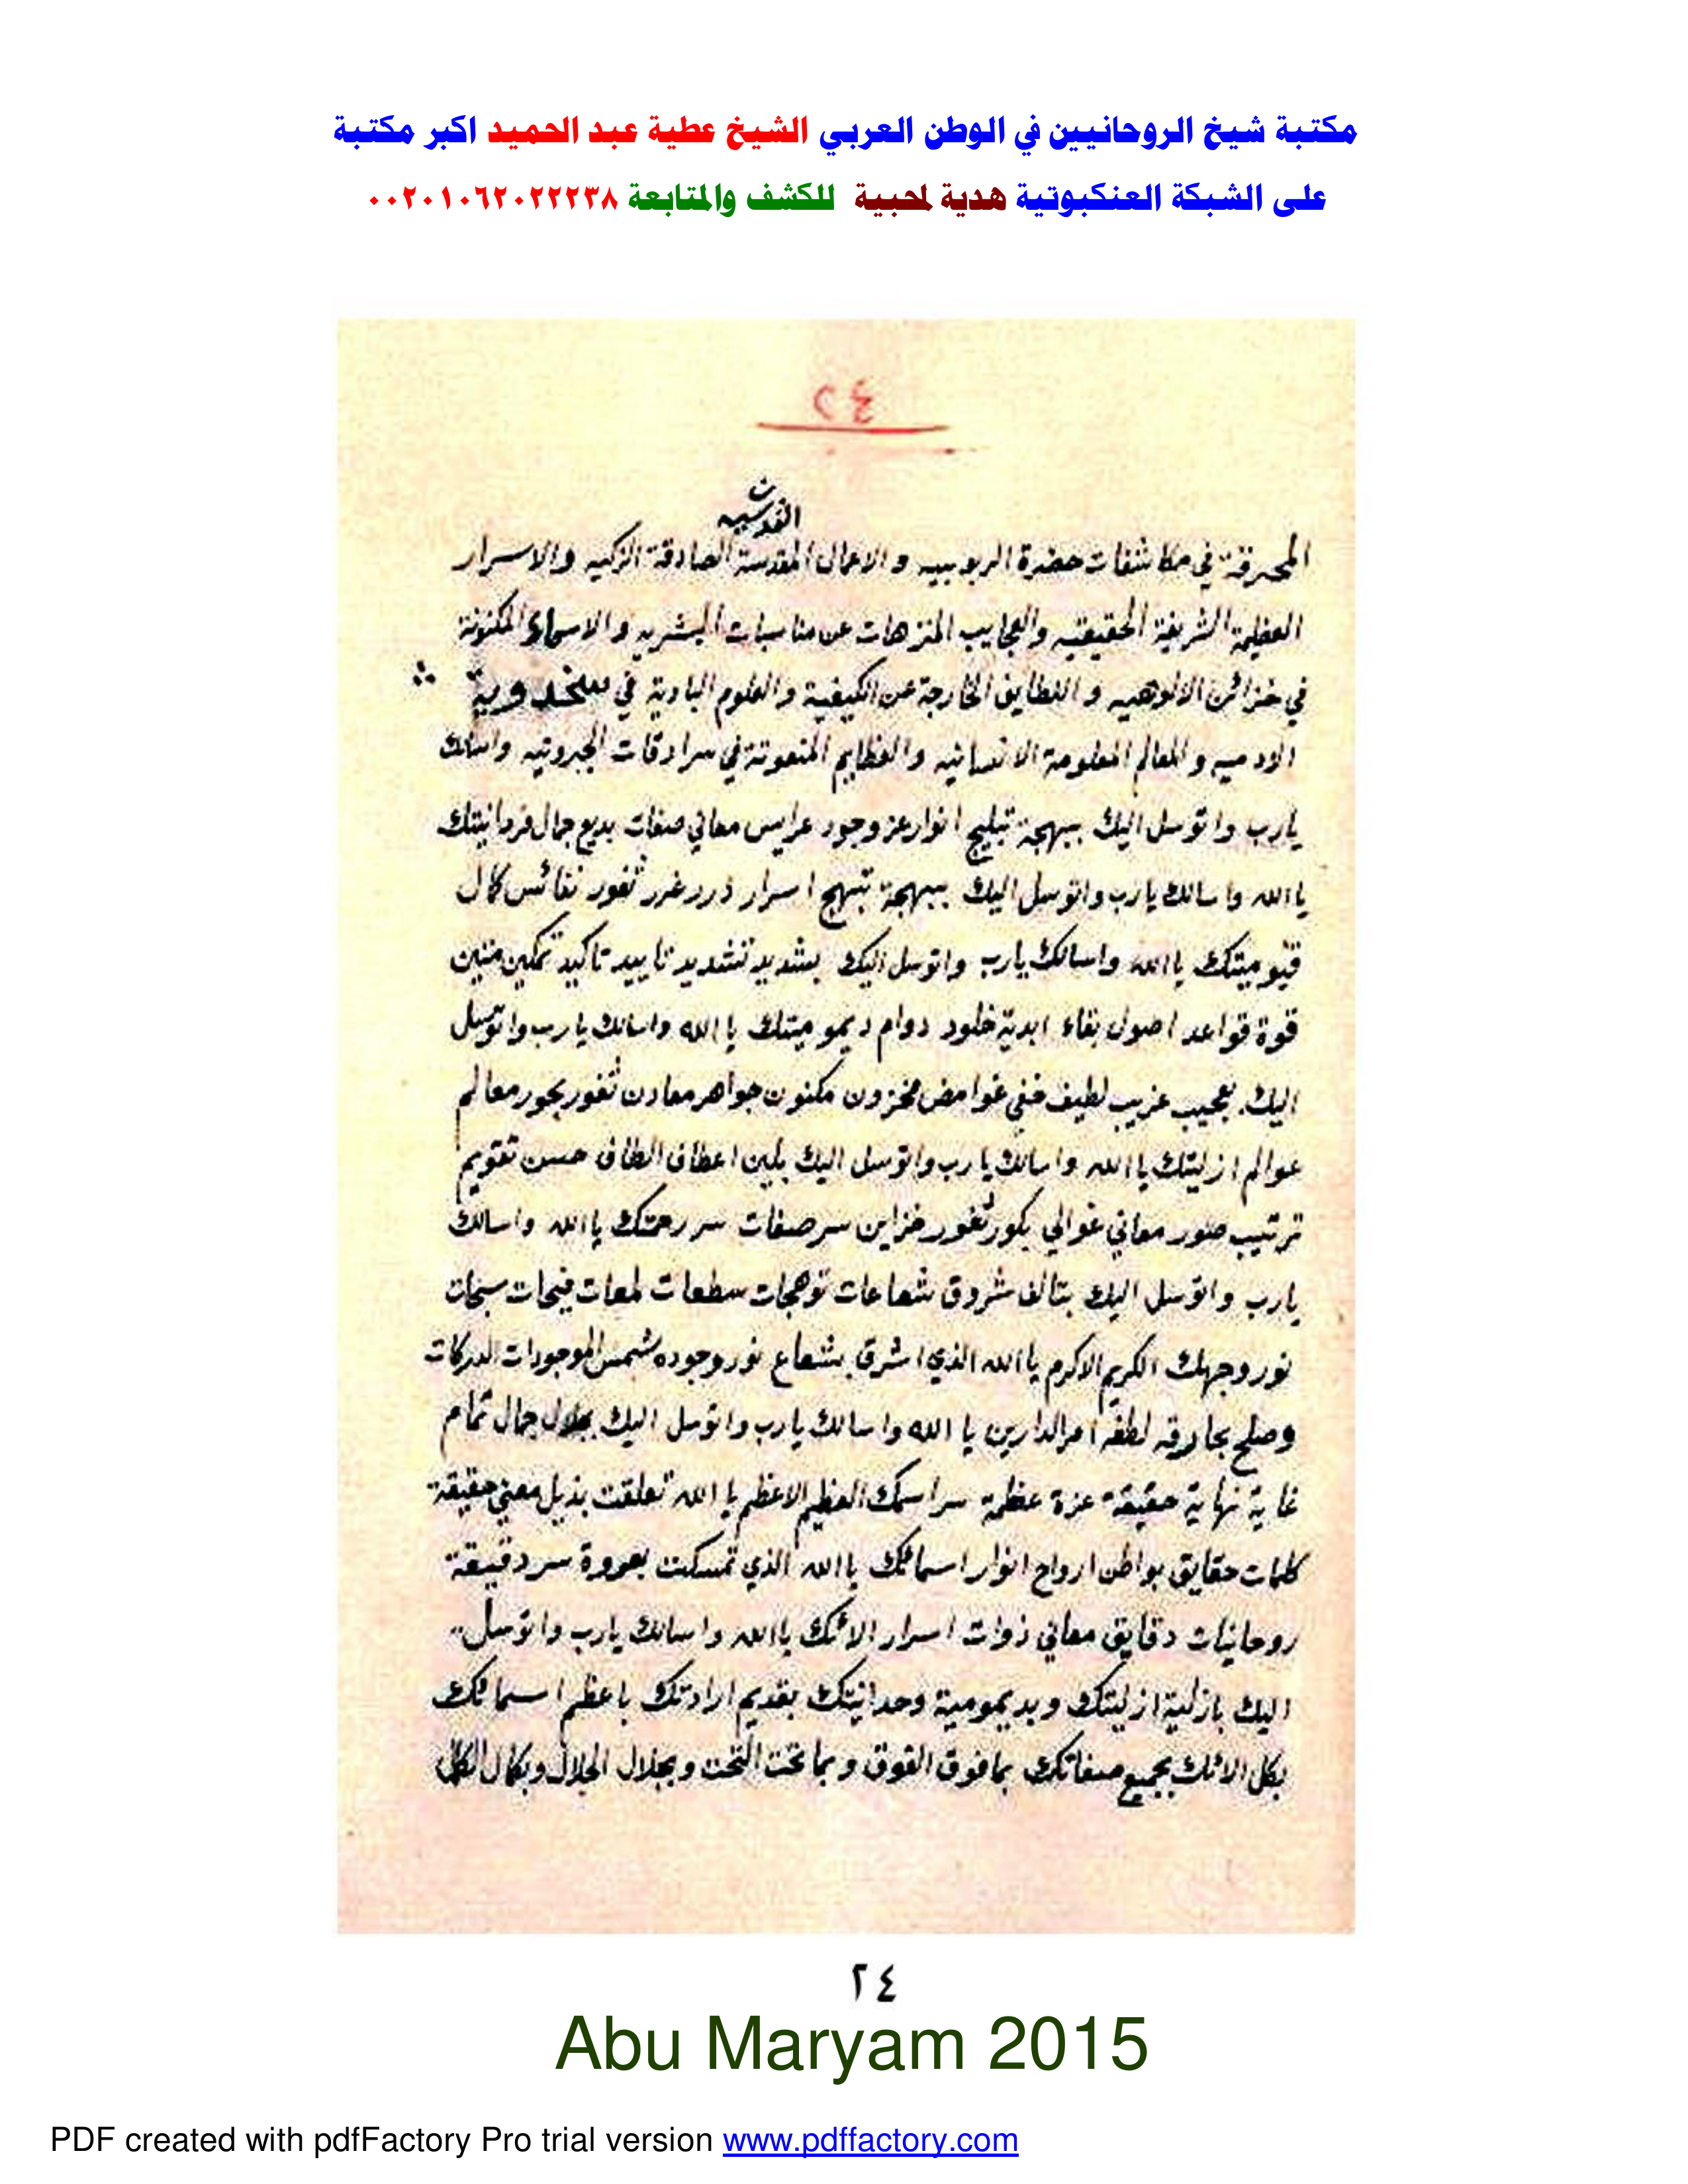 مكتبة شيخ الروحانيين في الوطن العربي الشيخ عطية عبد الحميد اكبر مكتبة
على الشبكة العنكبوتية هدية لمحبية للكشف والمتابعة ٠٠٢٠١٠٦٢٠٢٢٢٣٨
٢٤
القدسيه
المحرقة في مكاشفات حضرة الربوبيه و الاعمال المقدسة الصادقة الزكيه والاسرار
العظيمة الشريفة الحقيقيه والعجايب المنزهات عن مناسبات البشريه والاسماء المكنونة
في خزائن الالوهيه و اللطايف الخارجة عن الكيفية والعلوم البادية في
الادميه والمعالم المعلومة الانسانيه والعظايم المنعوتة في سرادقات الجبروتيه واسالك
يارب واتوسل اليك ببهجة تبليج انوار عز وجود عرايس معاني صفات بديع جمال فردانيتك
يا الله واسالك يارب واتوسل اليك ببهجة تبهج اسرار درر غرر ثغور نفائس كمال
قيوميتك يا الله واسالك يارب واتوسل اليك بشديد تشديد تاييد تاكيد تمكين متين
قوة قواعد اصول بقاء ابدية خلود دوام ديموميتك يا الله واسالك يارب واتوسل
اليك بعجيب غريب لطيف خفي غوامض مخزون مكنون جواهر معادن ثغور بحور معالم
عوالم ازليتك يا الله واسالك يارب واتوسل اليك بلين اعطاف الطاف حسن تقويم
ترتيب صور معاني غوالي بكور ثغور خزاين سر صفات سر رحمتك يا الله واسالك
يارب واتوسل اليك بتالف شروق شعاعات توهجات سطعات لمعات فيحات سبحات
نور وجهك الكريم الاكرم يا الله الذي اشرق بشعاع نور وجوده شمس الموجودات المدركات
وصلح لطفه امر الدارين يا الله واسالك يارب واتوسل اليك بجلال جمال تمام
غاية نهاية حقيقة عزة عظمة سر اسمك العظيم الاعظم يا الله تعلقت بذيل معني حقيقة
كلمات حقايق بواطن ارواح انوار اسمائك يا الله الذي تمسكت بعروة سر دقيقة
روحانيات دقايق معاني ذوات اسرار الائك يا الله واسالك يارب واتوسل
اليك بازلية ازليتك وبديمومية وحدانيتك بقديم ارادتك باعظم اسمائك
بكل الائك بجميع صفاتك بما فوق الفوق وبما تحت التحت وبجلال الجلال وبكمال الكمال
٢٤
Abu Maryam 2015
PDF created with pdfFactory Pro trial version www.pdffactory.com